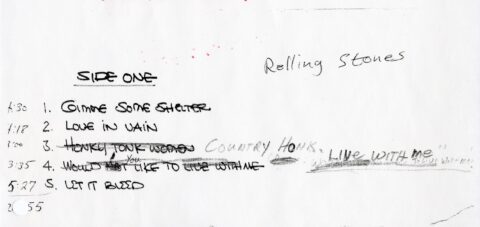 Rolling Stones
SIDE ONE
4:30 1. GIMME SOME SHELTER
4:18 2. LOVE IN VAIN
3:00 3. HONKY TONK WOMEN COUNTRY HONK.
3:35 4. WOULD NOT You LIKE TO LIVE WITH ME "LIVE WITH me"
5:27 5. LET IT BLEED
55